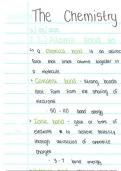 The Chemistry
a chemical bond is an attractive
force that holds atoms together in
a molecule
Covalent bond - strong bonds
that form from the sharing of
electrons
50 - 110 bond energy
Ionic bond - gain or loss of
electrons to achieve stability
through attraction of opposite
charges
3 - 7 bond energy